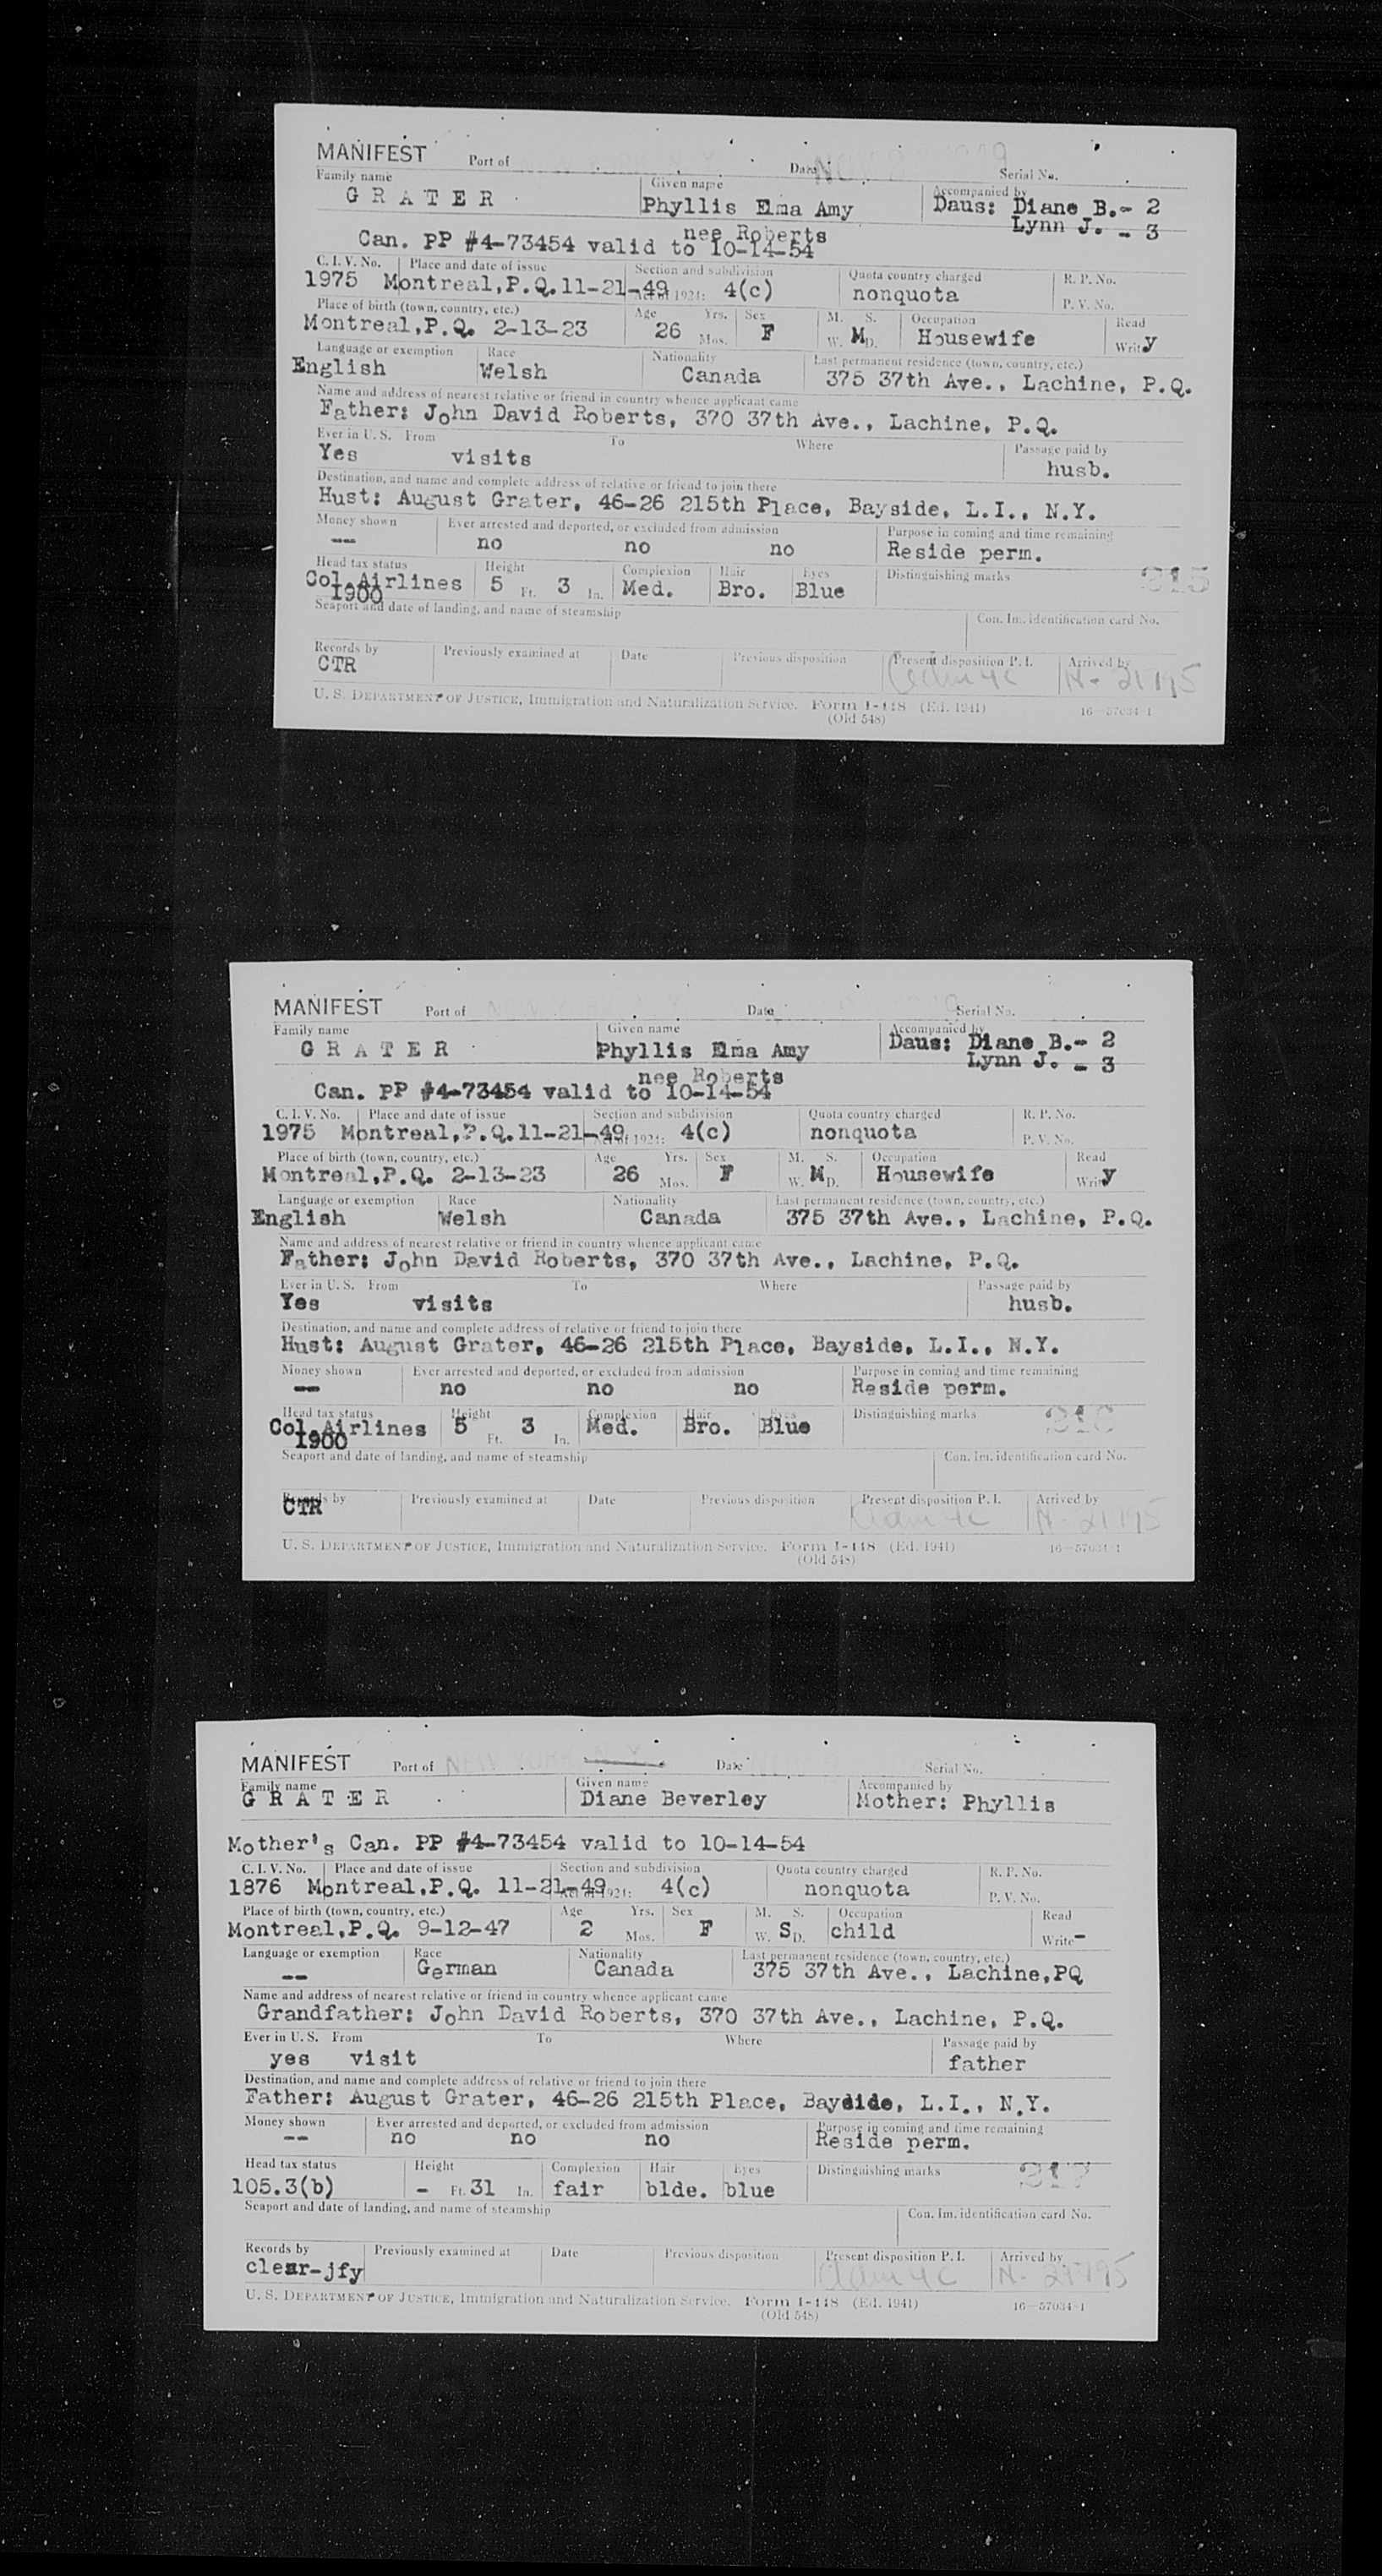 MANIFEST Port of Date Serial No.
Family name Given name Accompanied by
G R A T E R Phyllis Elma Amy Daus: Diane B.- 2
nee Roberts Lynn J. - 3
Can. PP #4-73454 valid to 10-14-54
C. I. V. No. Place and date of issue Section and subdivision Quota country charged R. P. No.
1975 Montreal,P.Q.11-21-49 Act of 1924: 4(c) nonquota P. V. No.
Place of birth (town, country, etc.) Age Yrs. Sex M. S. Occupation Read
Montreal,P.Q. 2-13-23 26 Mos. F W. M D. Housewife Write y
Language or exemption Race Nationality Last permanent residence (town, country, etc.)
English Welsh Canada 375 37th Ave., Lachine, P.Q.
Name and address of nearest relative or friend in country whence applicant came
Father: John David Roberts, 370 37th Ave., Lachine, P.Q.
Ever in U. S. From To Where Passage paid by
Yes visits husb.
Destination, and name and complete address of relative or friend to join there
Hust: August Grater, 46-26 215th Place, Bayside, L.I., N.Y.
Money shown Ever arrested and deported, or excluded from admission Purpose in coming and time remaining
-- no no no Reside perm.
Head tax status Height Complexion Hair Eyes Distinguishing marks 315
Col.Airlines 5 Ft. 3 In. Med. Bro. Blue
1900
Seaport and date of landing, and name of steamship Con. Im. identification card No.
Records by Previously examined at Date Previous disposition Present disposition P. I. Arrived by
CTR
U. S. DEPARTMENT OF JUSTICE, Immigration and Naturalization Service. Form I-448 (Ed. 1941) 16—57034-1
(Old 548)
MANIFEST Port of Date Serial No.
Family name Given name Accompanied by
G R A T E R Phyllis Elma Amy Daus: Diane B.- 2
nee Roberts Lynn J. - 3
Can. PP #4-73454 valid to 10-14-54
C. I. V. No. Place and date of issue Section and subdivision Quota country charged R. P. No.
1975 Montreal,P.Q.11-21-49 Act of 1924: 4(c) nonquota P. V. No.
Place of birth (town, country, etc.) Age Yrs. Sex M. S. Occupation Read
Montreal,P.Q. 2-13-23 26 Mos. F W. M D. Housewife Write y
Language or exemption Race Nationality Last permanent residence (town, country, etc.)
English Welsh Canada 375 37th Ave., Lachine, P.Q.
Name and address of nearest relative or friend in country whence applicant came
Father: John David Roberts, 370 37th Ave., Lachine, P.Q.
Ever in U. S. From To Where Passage paid by
Yes visits husb.
Destination, and name and complete address of relative or friend to join there
Hust: August Grater, 46-26 215th Place, Bayside, L.I., N.Y.
Money shown Ever arrested and deported, or excluded from admission Purpose in coming and time remaining
-- no no no Reside perm.
Head tax status Height Complexion Hair Eyes Distinguishing marks
Col.Airlines 5 Ft. 3 In. Med. Bro. Blue
1900
Seaport and date of landing, and name of steamship Con. Im. identification card No.
Records by Previously examined at Date Previous disposition Present disposition P. I. Arrived by
CTR
U. S. DEPARTMENT OF JUSTICE, Immigration and Naturalization Service. Form I-448 (Ed. 1941) 16—57034-1
(Old 548)
MANIFEST Port of Date Serial No.
Family name Given name Accompanied by
G R A T E R Diane Beverley Mother: Phyllis
Mother's Can. PP #4-73454 valid to 10-14-54
C. I. V. No. Place and date of issue Section and subdivision Quota country charged R. P. No.
1876 Montreal,P.Q. 11-21-49 Act of 1924: 4(c) nonquota P. V. No.
Place of birth (town, country, etc.) Age Yrs. Sex M. S. Occupation Read
Montreal,P.Q. 9-12-47 2 Mos. F W. S D. child Write -
Language or exemption Race Nationality Last permanent residence (town, country, etc.)
-- German Canada 375 37th Ave., Lachine,PQ
Name and address of nearest relative or friend in country whence applicant came
Grandfather: John David Roberts, 370 37th Ave., Lachine, P.Q.
Ever in U. S. From To Where Passage paid by
yes visit father
Destination, and name and complete address of relative or friend to join there
Father: August Grater, 46-26 215th Place, Baydide, L.I., N.Y.
Money shown Ever arrested and deported, or excluded from admission Purpose in coming and time remaining
-- no no no Reside perm.
Head tax status Height Complexion Hair Eyes Distinguishing marks 317
105.3(b) - Ft. 31 In. fair blde. blue
Seaport and date of landing, and name of steamship Con. Im. identification card No.
Records by Previously examined at Date Previous disposition Present disposition P. I. Arrived by
clear-jfy
U. S. DEPARTMENT OF JUSTICE, Immigration and Naturalization Service. Form I-448 (Ed. 1941) 16—57034-1
(Old 548)